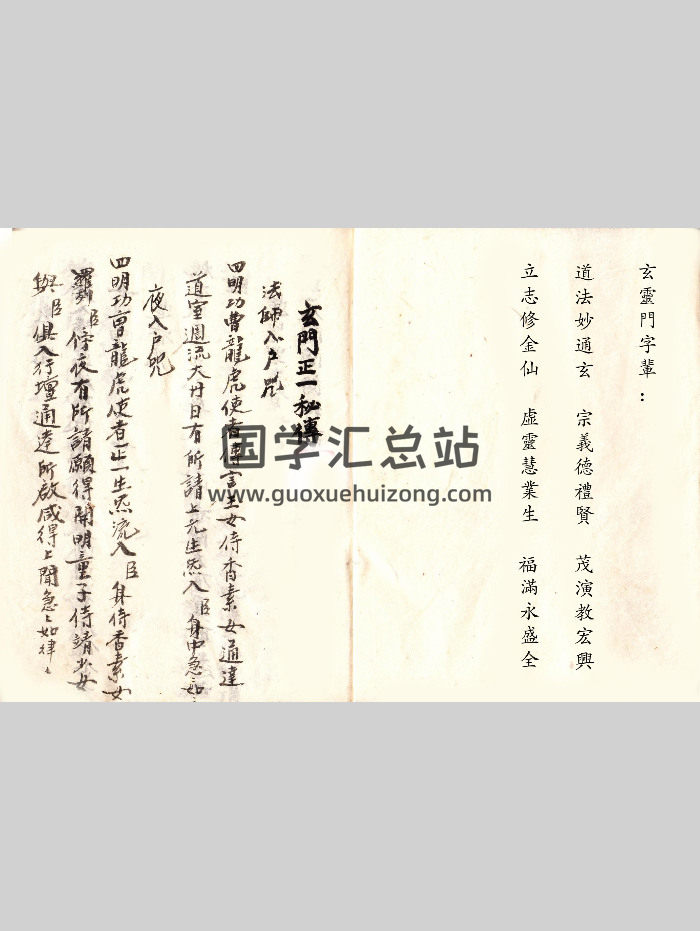 玄靈門字輩：
道法妙通玄　宗義德禮賢　茂演教宏興
立志修金仙　虛靈慧業生　福滿永盛全
玄門正一秘傳
法師入户咒
四明功曹龍虎使者傳言玉女侍香素女通達
道室週流大丹日有所請上元生炁入臣身中急如
夜入户咒
四明功曹龍虎使者正一生炁流入臣身侍香素女
羅列臣侍夜有所請願得開明童子侍靖少女
與臣俱入行壇通達所啟咸得上聞急〻如律〻
国学汇总站
www.guoxuehuizong.com